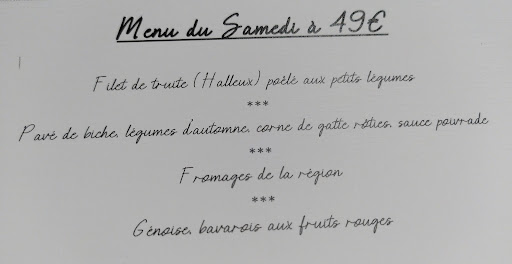 Menu du Samedi à 49€
Filet de truite (Halleux) poêlé aux petits légumes
***
Pavé de biche, légumes d'automne, corne de gatte rôties, sauce poivrade
***
Fromages de la région
***
Génoise, bavarois aux fruits rouges